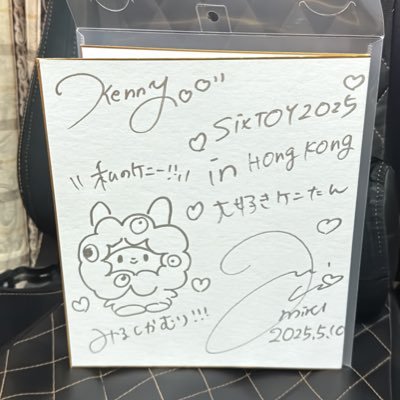 Kenny
SixTOY2025
in HONG KONG
"私のケニー!!"
大好きケニたん
みるしかむり!!!
miki
2025.5.10